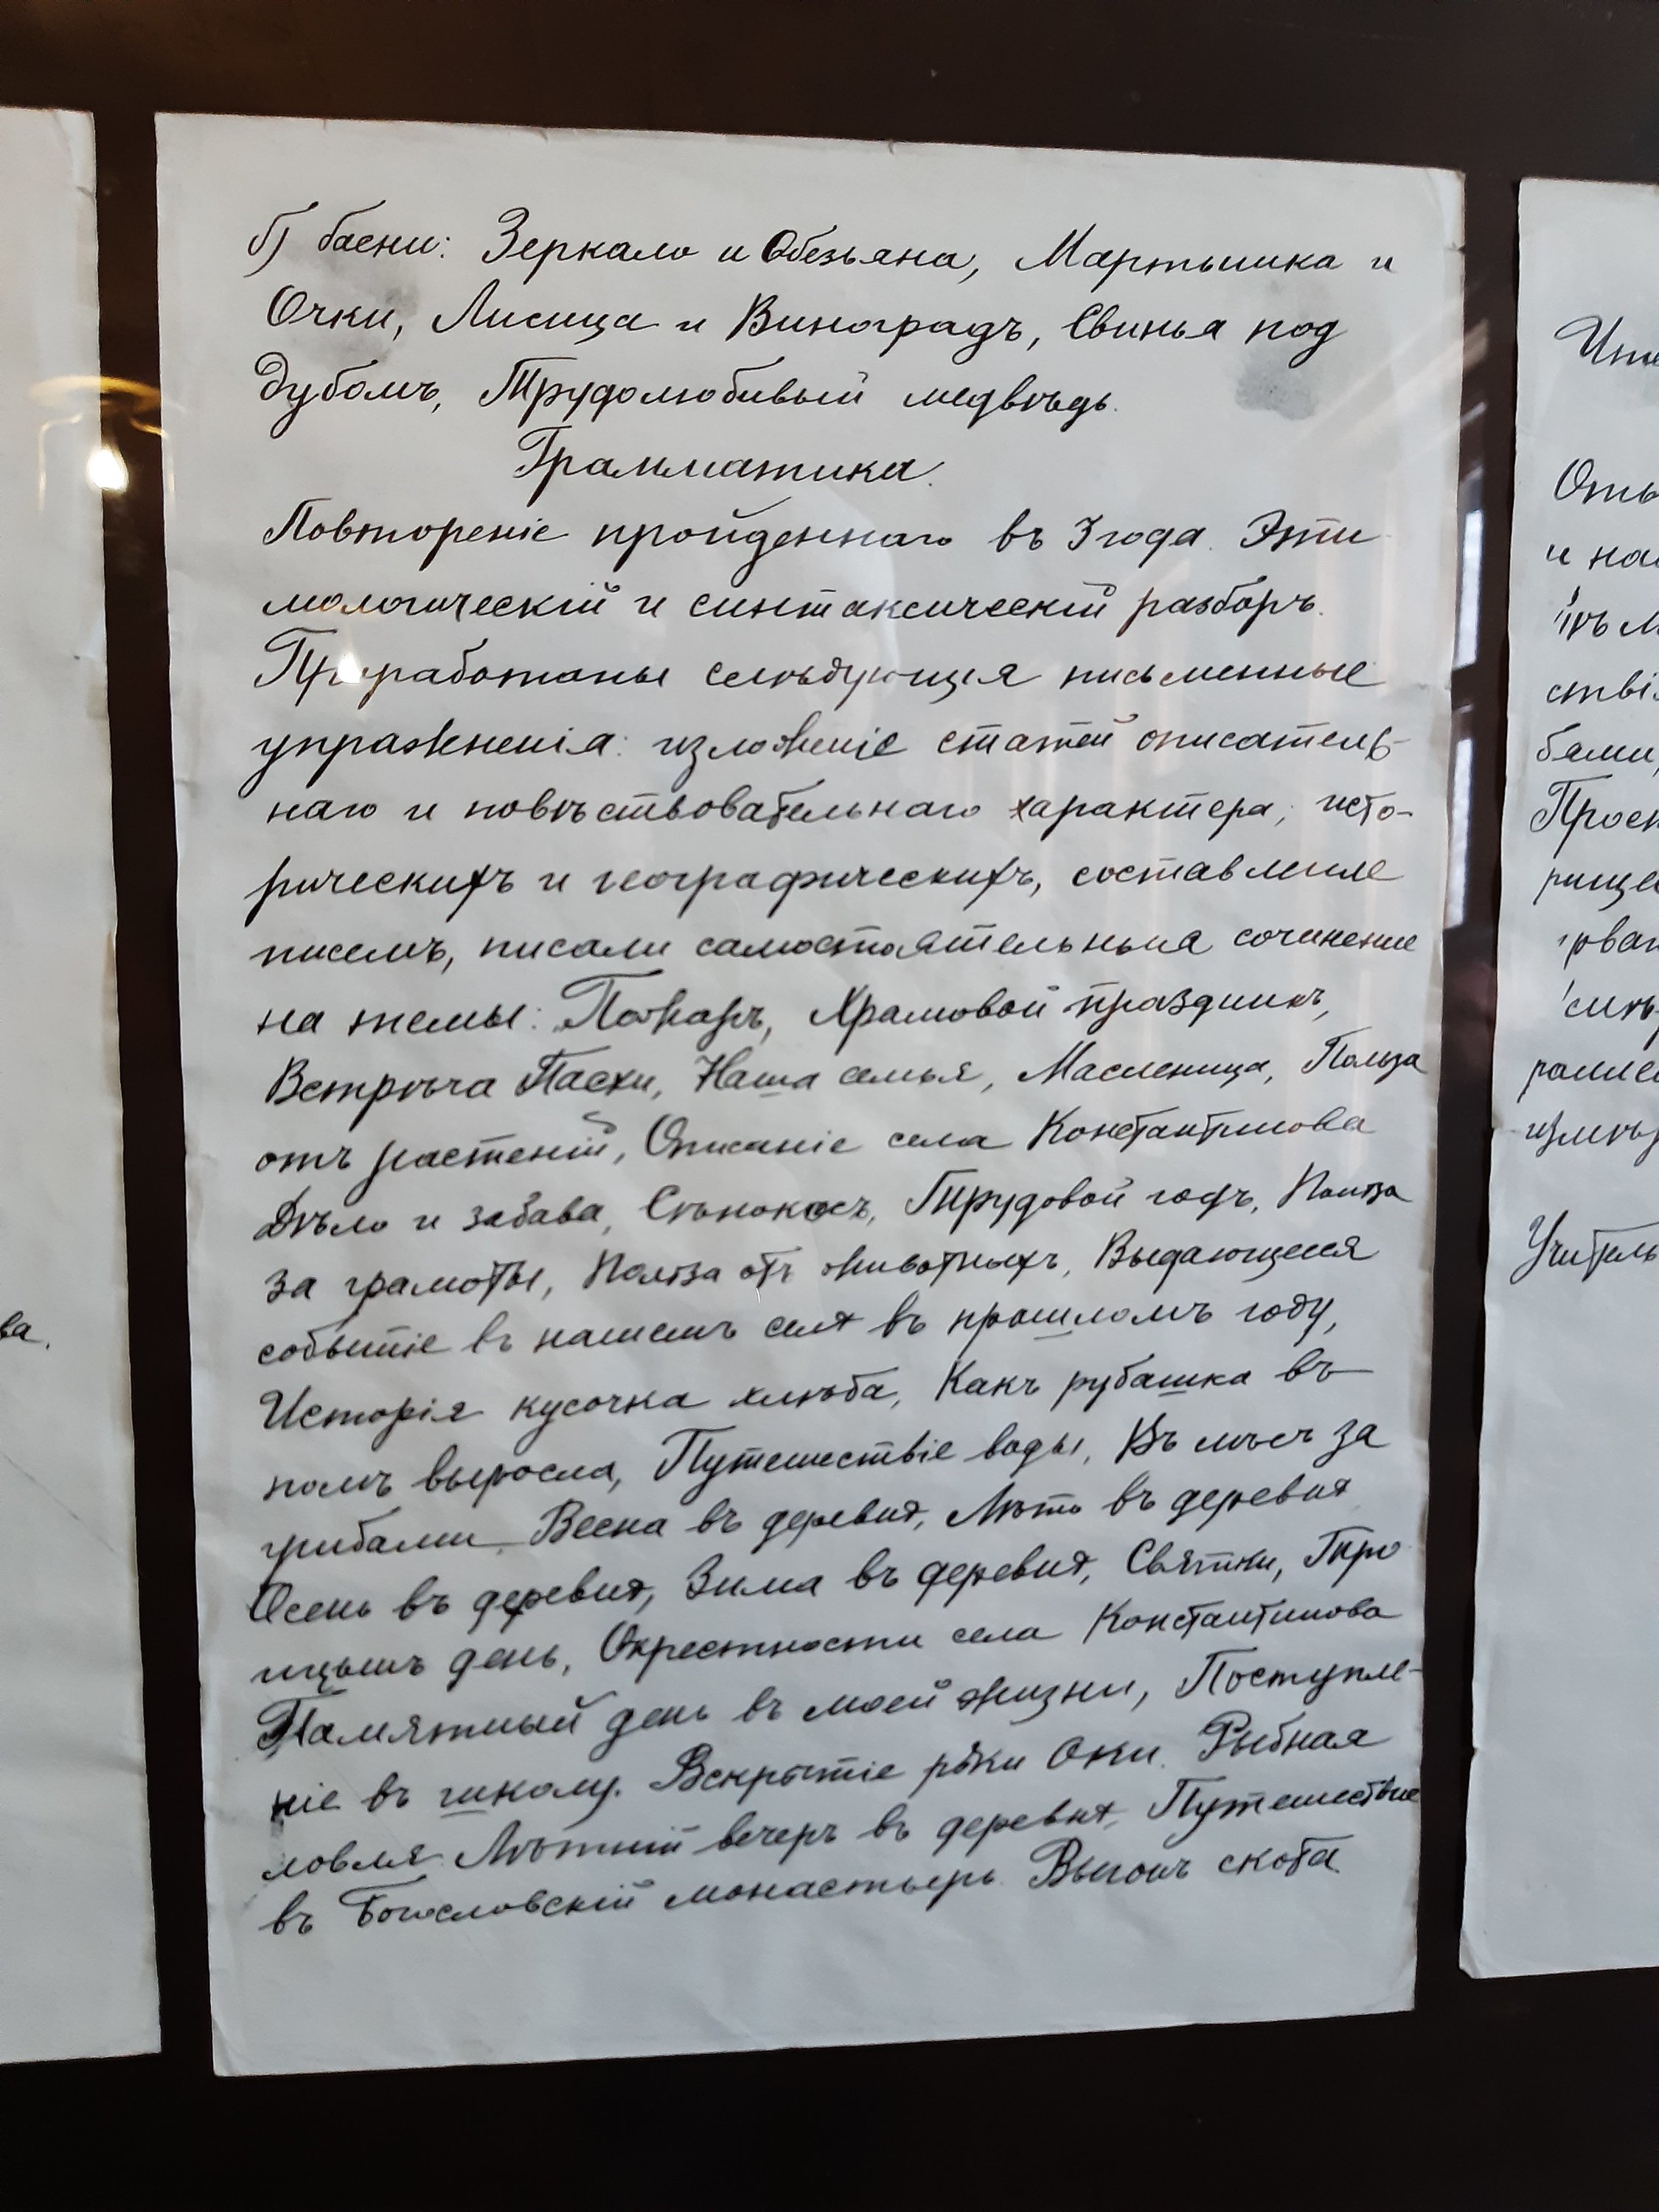 ва.
б) басни: Зеркало и Обезьяна, Мартышка и
Очки, Лисица и Виноградъ, Свинья под
дубомъ, Трудолюбивый медвѣдь.
Грамматика.
Повтореніе пройденнаго въ 3 года. Эти
мологическій и синтаксическій разборъ.
Проработаны слѣдующія письменные
упражненія: изложеніе статей описатель-
наго и повѣствовательнаго характера, исто-
рическихъ и географическихъ, составленіе
писемъ, писали самостоятельныя сочинение
на темы: Пожаръ, Храмовой праздникъ,
Встрѣча Пасхи, Наша семья, Масленица, Польза
отъ растеній, Описаніе села Константинова
Дѣло и забава, Сѣнокосъ, Трудовой годъ, Польза
за грамоты, Польза отъ животныхъ, Выдающееся
событіе въ нашемъ селѣ въ прошломъ году,
Исторія кусочка хлѣба, Какъ рубашка въ
полѣ выросла, Путешествіе воды, Въ лѣсъ за
грибами, Весна въ деревнѣ, Лѣто въ деревнѣ
Осень въ деревнѣ, Зима въ деревнѣ, Святки, Тро
ицынъ день, Окрестности села Константинова
Памятный день въ моей жизни, Поступле-
ніе въ школу. Вскрытіе рѣки Оки. Рыбная
ловля. Лѣтній вечеръ въ деревнѣ, Путешествіе
въ Богословскій монастырь. Выгонъ скота
и на
бами,
Прос
Учитель